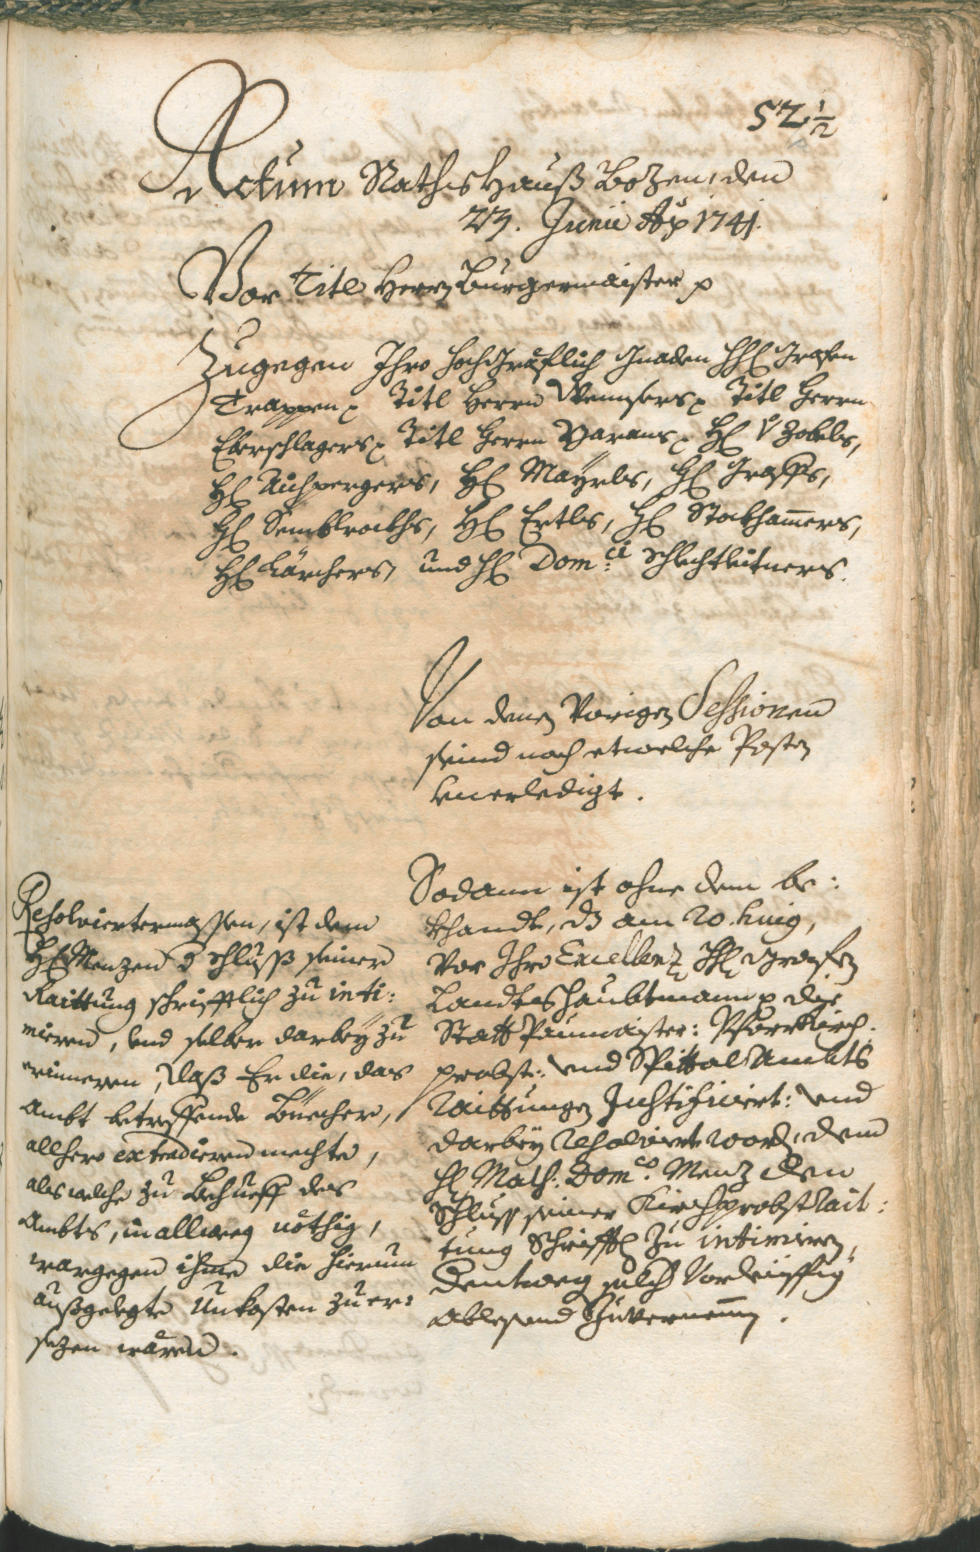 52 1/2
Actum Rathshauß Bozen, den
23. Junii Ao 1741.
Vor Titl Herrn Burgermaister p
Zugegen Ihro hochgräflich Gnaden HH Grafen
Trappen p Titl Herrn Wensers p Titl Herrn
Eberschlagers p Titl Herrn Parans p H v Zobels,
H Aichpergers, H Mayrls, H Graffs,
H Semblroths, H Ertls, H Stockhamers,
H Kärchers, und H Dom:ci Schlechtleitners.
Von denen Vorigen Sessionen
seind noch etwelche Posten
unerledigt.
Resolviertermassen, ist dem
H Menzen d schluss seiner
Raittung schrifftlich zu inti:
mieren, und selber darbey zu
erinneren, daß Er die, das
Ambt betreffende Büecher,
allhero extradieren mechte,
als welche zu Behueff des
Ambts, in allweg nöthig,
wargegen ihme die hierum
außgelegte Unkosten zu er:
sezen wären.
Sodann ist ohne dem be:
khandt, dz am 20. huig,
vor Ihro Excellenz H Grafen
Landtshaubtmann p die
Statt Paumaister: Pfarrkirch:
probst: und Spittal Ambts
Raittungen Justificiert: und
darbey resolviert word, dem
H Math: Dom:co Menz den
Schluss seiner Kirchprobst Rait:
tung Schrifftl zu intimieren,
dentweg solch Vorleiffig
ablesend zuvernemen.